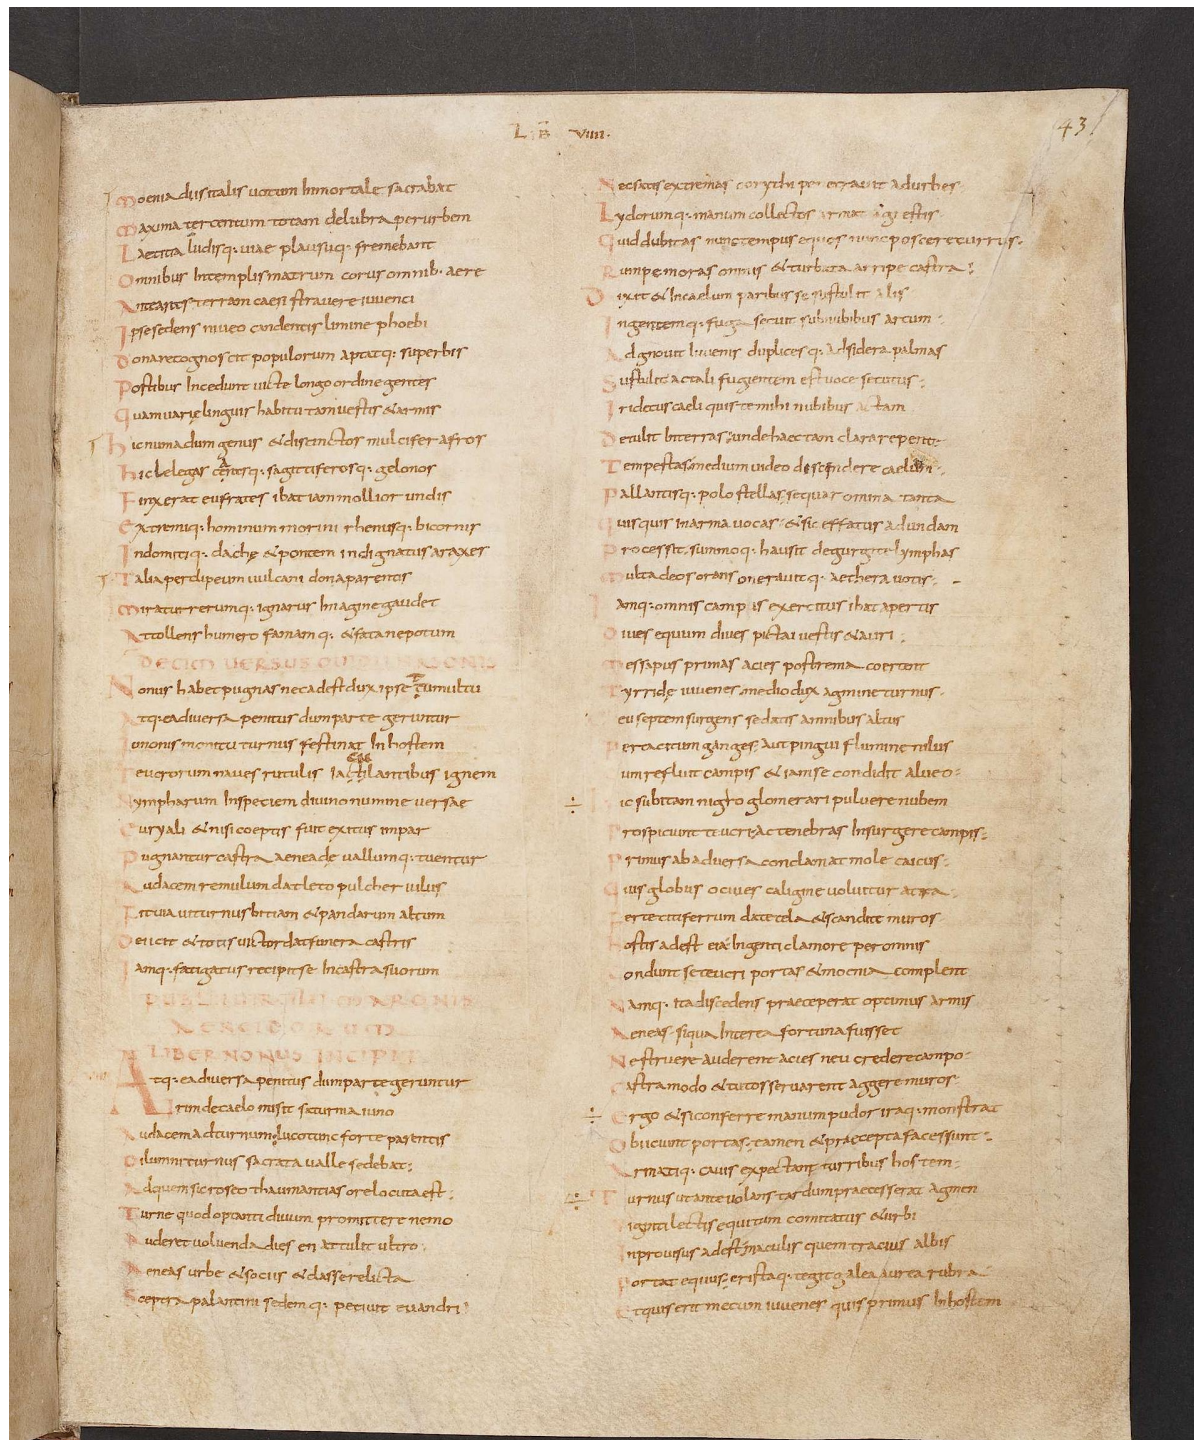 LIB VIIII·
43
Moenia diis italis uotum Inmortale sacrabat
Maxima ter centum totam delubra per urbem
Laetitia ludisq: uiae plausuq: fremebant
Omnibus Intemplis matrum corus omnib· aere
Ante arastis terram caesi strauere iuuenci
Ipse sedens niueo candentis limine phoebi
Dona recognoscit populorum aptatq: superbis
Postibus Incedunt uicte longo ordine gentes
Quam uarię linguis habitu tam uestis & armis
hic numadum genus & discinctos mulcifer afros
hic lelegas carasq: sagittiferosq: gelonos
Finxerat eufrates ibat iam mollior undis
Extremiq: hominum morini rhenusq: bicornis
Indomitiq: dachę & pontem indignatus araxes
Talia per clipeum uulcani dona parentis
Miratur rerumq: ignarus Imagine gaudet
Attollens humero famamq: & fata nepotum
DECIM VERSUS OUIDII NASONIS
Nonus habet pugnas nec adest dux ipse tumultu
Atq: ea diuersa penitus dum parte geruntur
Iunonis monitu turnus festinat Inhostem
Teucrorum naues rutulis Iaculantibus ignem
Nympharum Inspeciem diuino numine uersae
Euryali & nisi coeptis fuit exitus impar
Pugnantur castra aeneadę uallumq: tuentur
Audacem remulum dat leto pulcher iulus
Tituia ui turnus bitiam & pandarum altum
Deiicit & totis uictor dat funera castris
Iamq: fatigatus recipit se Incastra suorum
PUBLII UIRGILII MARONIS
AENEIDORUM
LIBER NONUS INCIPIT
Atq: ea diuersa penitus dum parte geruntur
Irim de caelo misit saturnia iuno
Audacem ad turnum: luco tunc forte parentis
Pilumni turnus sacrata ualle sedebat:
Ad quem sic roseo thaumantias ore locuta est:
Turne quod optanti diuum promittere nemo
Auderet uoluenda dies en attulit ultro·
Aeneas urbe & sociis & classe relicta
Sceptra palantini sedemq: petiuit euandri
Nec satis extremas corythi penetrauit ad urbes
Lydorumq: manum collectos armat agrestis
Quid dubitas nunc tempus equos nunc poscere currus·
Rumpe moras omnis & turbata arripe castra:
Dixit & Incaelum paribus se sustulit alis
Ingentemq: fuga secuit sub nubibus arcum·
Adgnouit Iuuenis duplicesq: Adsidera palmas
Sustulit ac tali fugientem est uoce secutus:
Iri decus caeli quis te mihi nubibus actam
Detulit Interras; unde haec tam clara repente
Tempestas: medium uideo discendere caelum·
Pallantisq: polo stellas, sequar omina tanta
Quisquis Inarma uocas· & sic effatus ad undam
Processit, summoq: hausit de gurgite lymphas
Multa deos orans onerauitq: aethera uotis:
Iamq: omnis campis exercitus ibat apertis
Diues equum diues pictai uestis & auri:
Messapus primas acies postrema coercent
Tyrridę iuuenes medio dux agmine turnus·
Ceu septem surgens sedatis amnibus altus
Per tacitum ganges; Aut pingui flumine nilus
Cum refluit campis & iam se condidit alueo:
Hic subitam nigro glomerari puluere nubem
Prospiciunt teucri: Ac tenebras Insurgere campis:
Primus ab aduersa conclamat mole caicus:
Quis globus o ciues caligine uoluitur atra·
Ferte citi ferrum date tela & scandite muros
Hostis adest eia: Ingenti clamore per omnis
Condunt se teucri portas & moenia complent
Namq: Ita discedens praeceperat optimus armis
Aeneas· siqua Interea fortuna fuisset
Ne struere auderent acies neu credere campo·
Castra modo & tutos seruarent aggere muros·
Ergo & si conferre manum pudor iraq: monstrat
Obiciunt portas; tamen & praecepta facessunt:
Armatiq: cauis expectant turribus hostem:
Turnus ut ante uolans tardum praecesserat Agmen
Viginti lectis equitum comitatus & urbi
Inprouisus adest; maculis quem tracius albis
Portat equus; cristaq: tegit galea Aurea rubra·
Etquis erit mecum iuuenes quis primus Inhostem